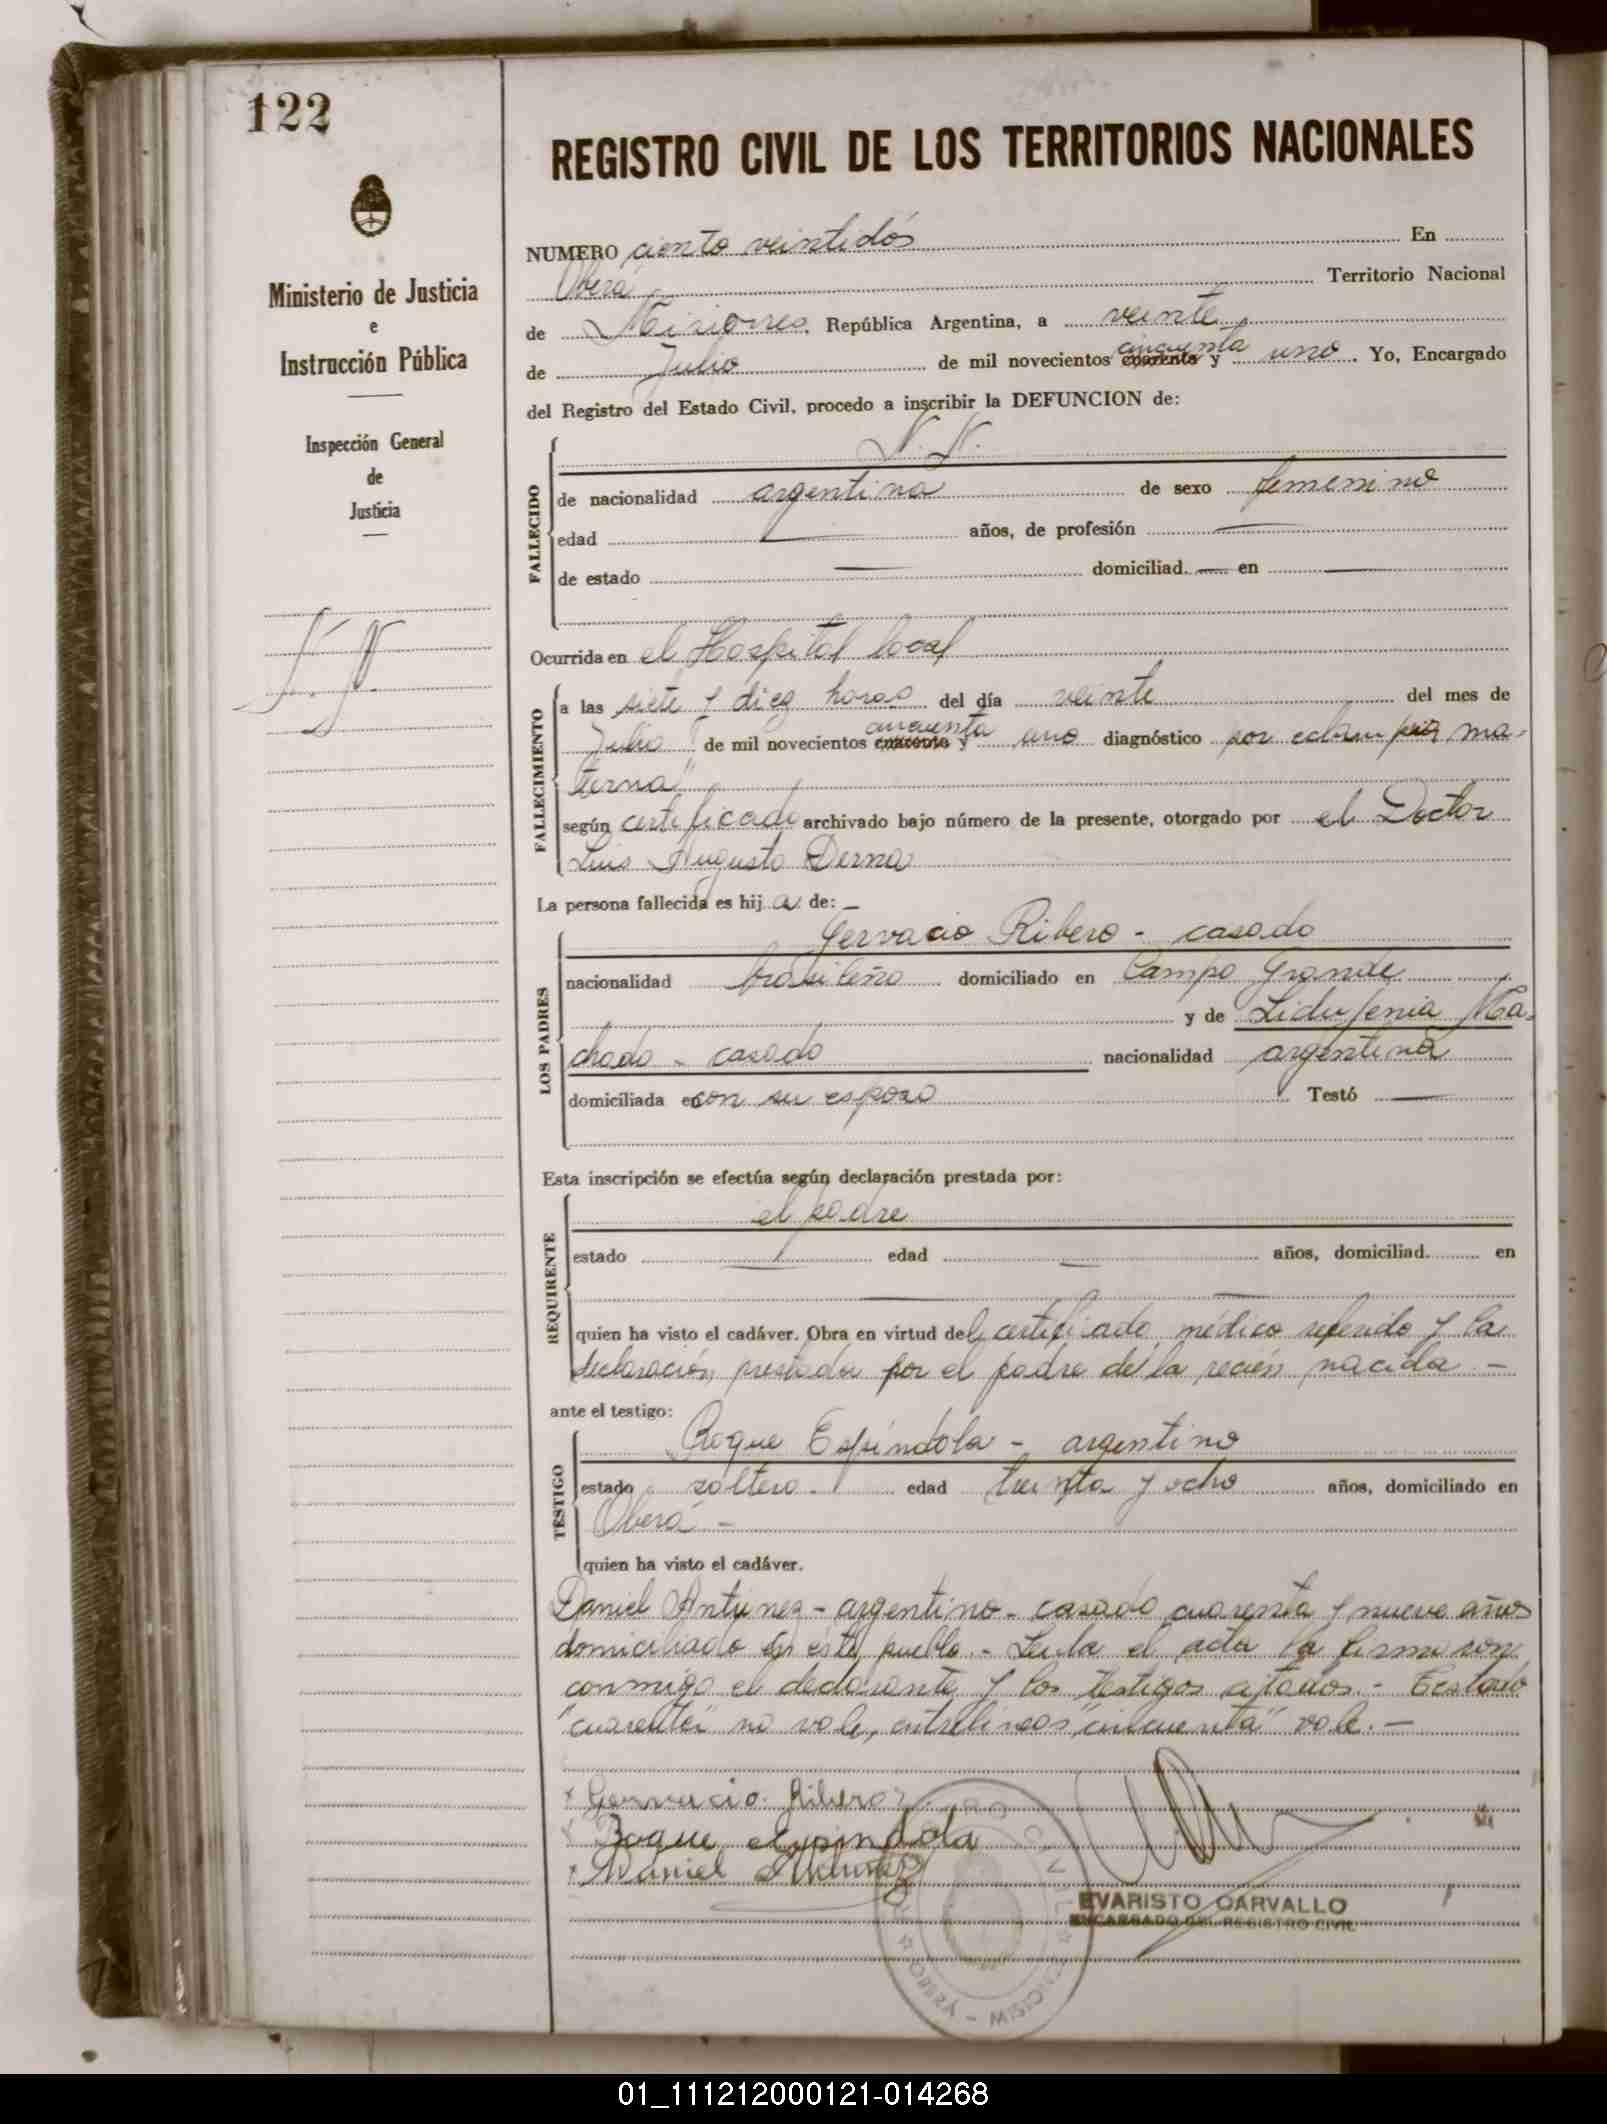 122
REGISTRO CIVIL DE LOS TERRITORIOS NACIONALES
Ministerio de Justicia
e
Instrucción Pública
Inspección General
de
Justicia
N. N.
NUMERO ciento veintidós En
Oberá Territorio Nacional
de Misiones, República Argentina, a veinte
de Julio de mil novecientos cuarenta cincuenta y uno. Yo, Encargado
del Registro del Estado Civil, procedo a inscribir la DEFUNCION de:
N. N.
FALLECIDO
de nacionalidad argentina de sexo femenino
edad — años, de profesión —
de estado — domiciliad. — en —
Ocurrida en el Hospital local
FALLECIMIENTO
a las siete y diez horas del día veinte del mes de
Julio de mil novecientos cuarenta cincuenta y uno diagnóstico por eclampsia ma-
terna
según certificado archivado bajo número de la presente, otorgado por el Doctor
Luis Augusto Derna
La persona fallecida es hij a de: —
LOS PADRES
Gervacio Ribero - casado
nacionalidad brasileño domiciliado en Campo Grande
y de Lidufenia Ma-
chado - casada nacionalidad argentina
domiciliada en con su esposo Testó —
Esta inscripción se efectúa según declaración prestada por:
REQUIRENTE
el padre
estado — edad — años, domiciliad. en
— —
quien ha visto el cadáver. Obra en virtud del certificado médico referido y la
declaración prestada por el padre de la recién nacida. —
ante el testigo:
TESTIGO
Roque Espíndola - argentino
estado soltero. edad treinta y ocho años, domiciliado en
Oberá —
quien ha visto el cadáver.
Daniel Antunez - argentino - casado cuarenta y nueve años
domiciliado en este pueblo. - Leída el acta la firmaron
conmigo el declarante y los testigos citados. - Testado
"cuarenta" no vale, entrelíneas "cincuenta" vale. —
x Gervacio Ribero
x Roque Espindola
x Daniel Antunez
EVARISTO CARVALLO
ENCARGADO DEL REGISTRO CIVIL
01_111212000121-014268